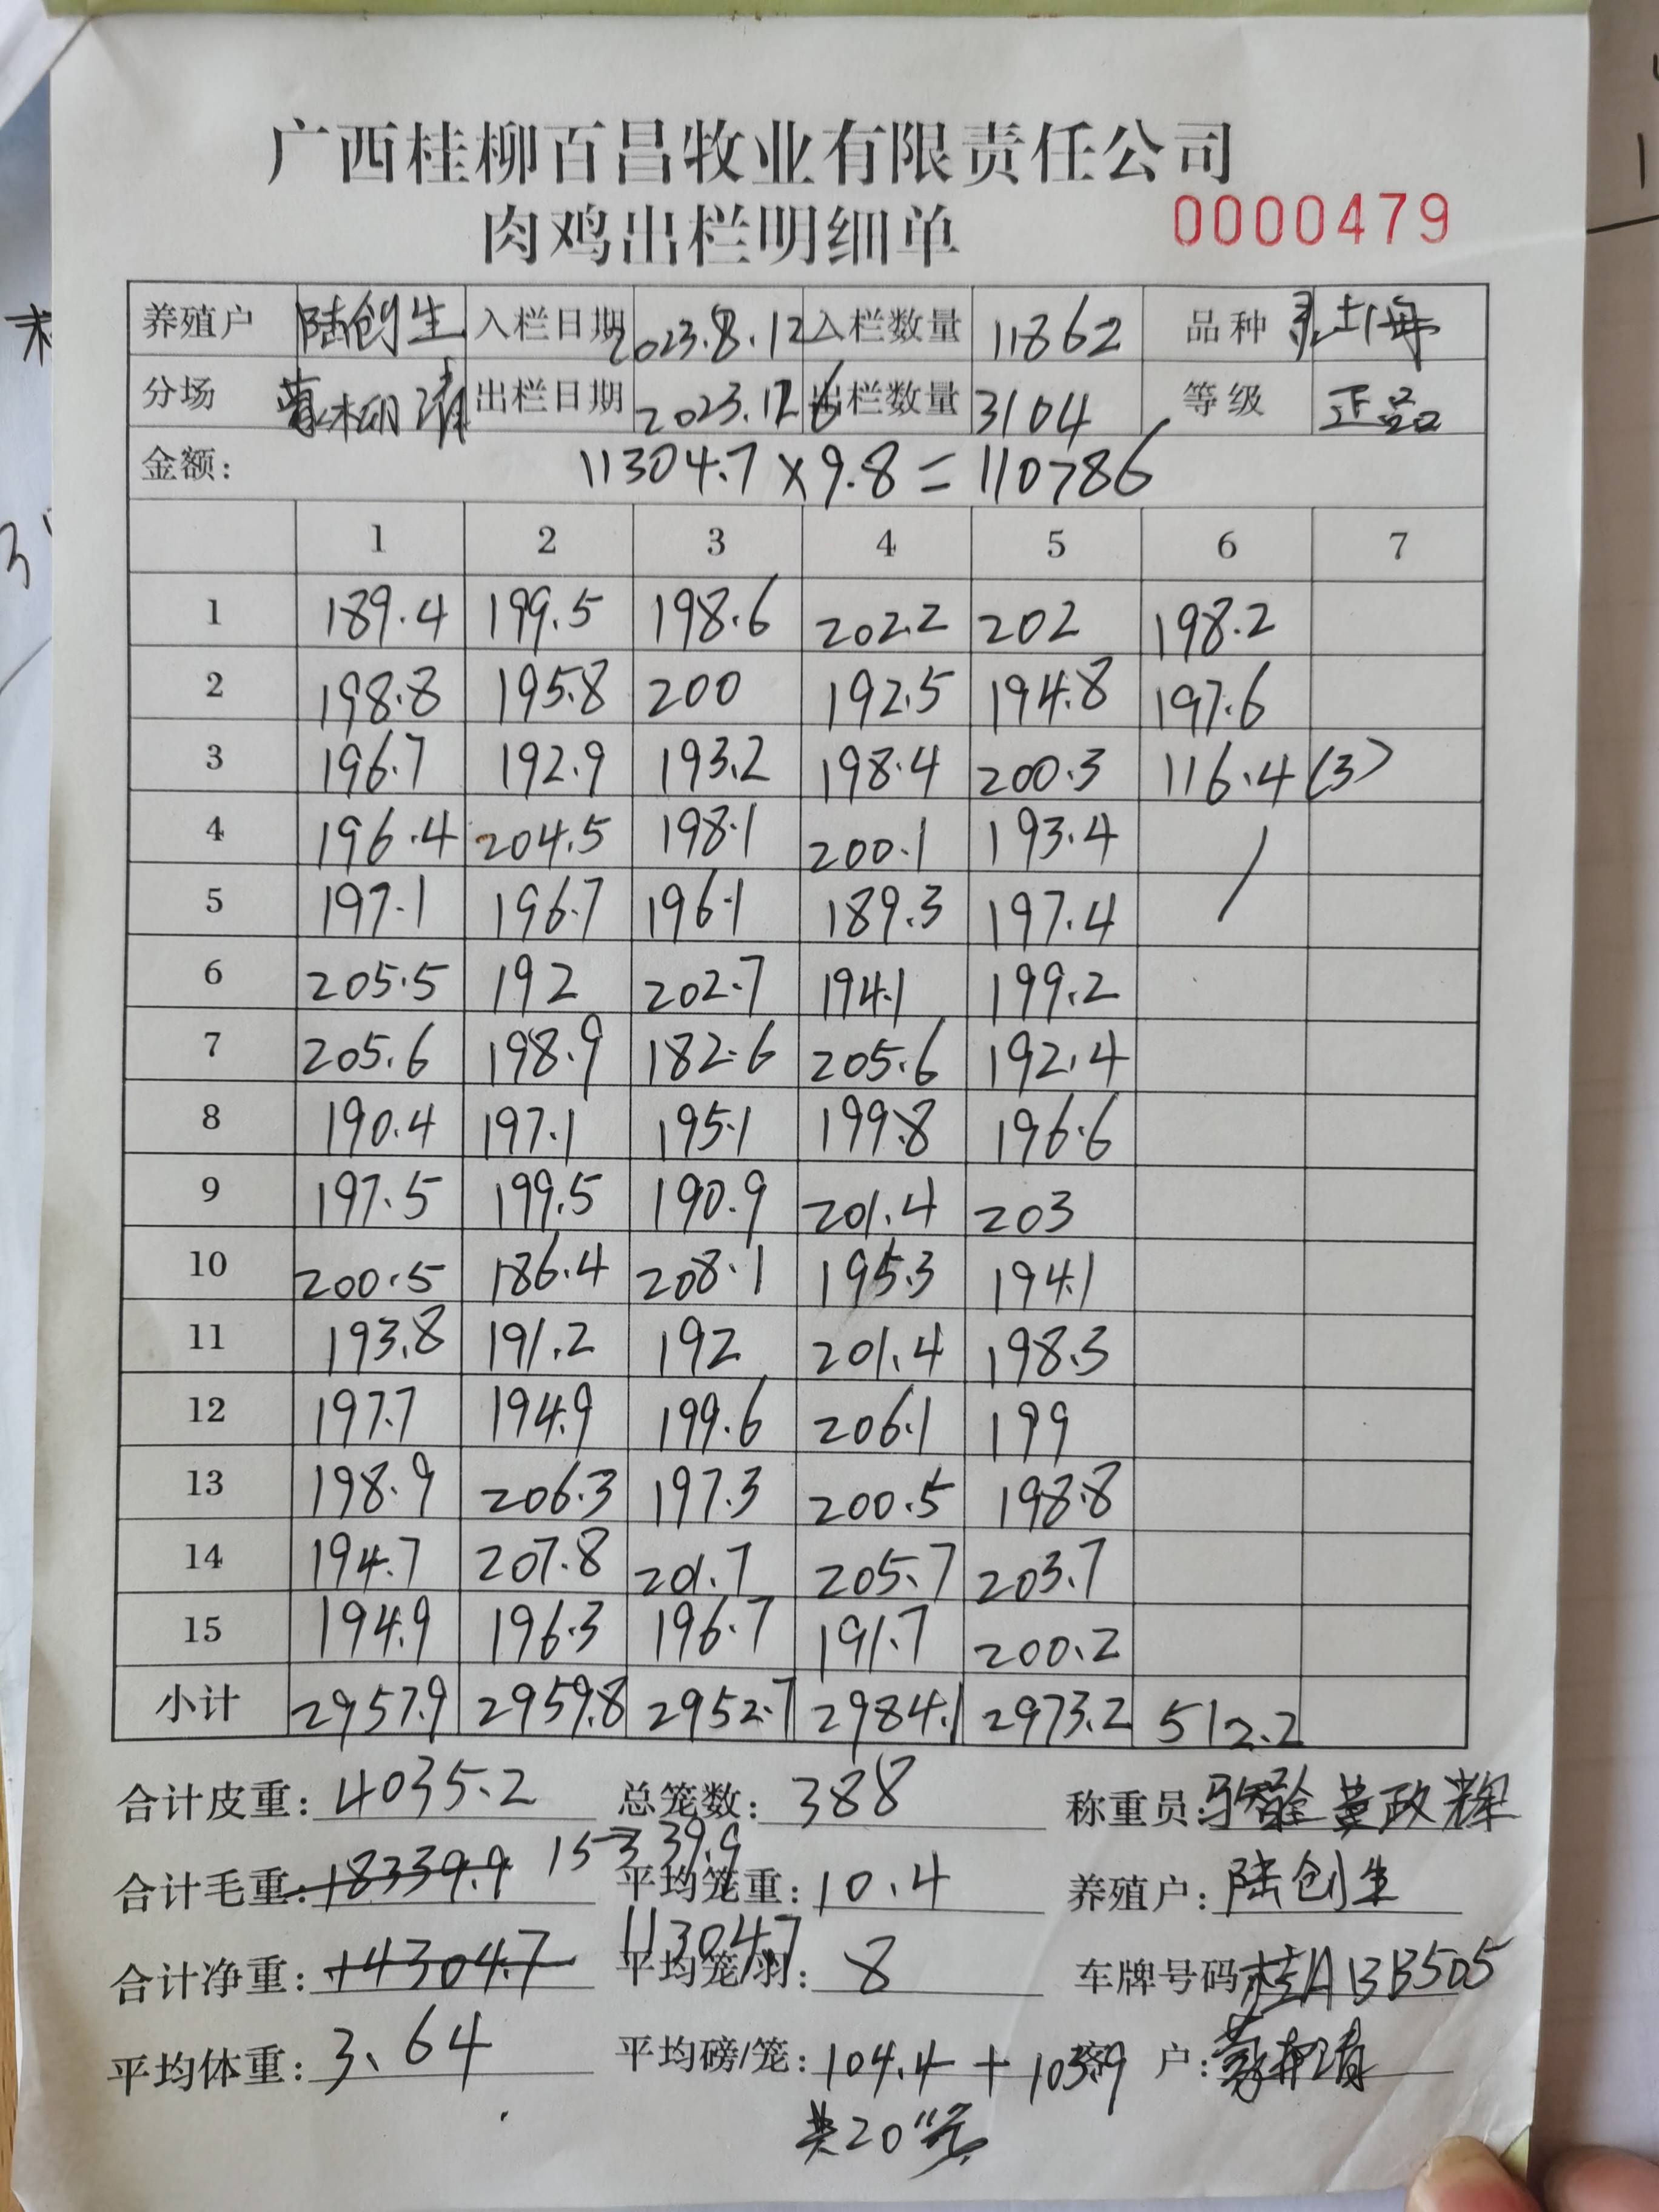 广西桂柳百昌牧业有限责任公司
肉鸡出栏明细单 0000479
养殖户 陆创生 入栏日期 2023.8.12 入栏数量 11862 品种
分场 出栏日期 2023.12.6 出栏数量 3104 等级 正品
金额: 11304.7×9.8=110786
1 2 3 4 5 6 7
1 189.4 199.5 198.6 202.2 202 198.2
2 198.8 195.8 200 192.5 194.8 197.6
3 196.7 192.9 193.2 198.4 200.3 116.4 (3)
4 196.4 204.5 198.1 200.1 193.4 /
5 197.1 196.7 196.1 189.3 197.4
6 205.5 192 202.7 194.1 199.2
7 205.6 198.9 182.6 205.6 192.4
8 190.4 197.1 195.1 199.8 196.6
9 197.5 199.5 190.9 201.4 203
10 200.5 186.4 208.1 195.3 194.1
11 193.8 191.2 192 201.4 198.3
12 197.7 194.9 199.6 206.1 199
13 198.9 206.3 197.3 200.5 198.8
14 194.7 207.8 201.7 205.7 203.7
15 194.9 196.3 196.7 191.7 200.2
小计 2957.9 2959.8 2952.7 2984.1 2973.2 512.2
合计皮重: 4035.2 总笼数: 388 称重员: 黄政辉
合计毛重: 18339.9 15339.9 平均笼重: 10.4 养殖户: 陆创生
合计净重: 14304.7 11304.7 平均笼/羽: 8 车牌号码 桂ABB505
平均体重: 3.64 平均磅/笼: 104.4+103.9 客户:
共20笼